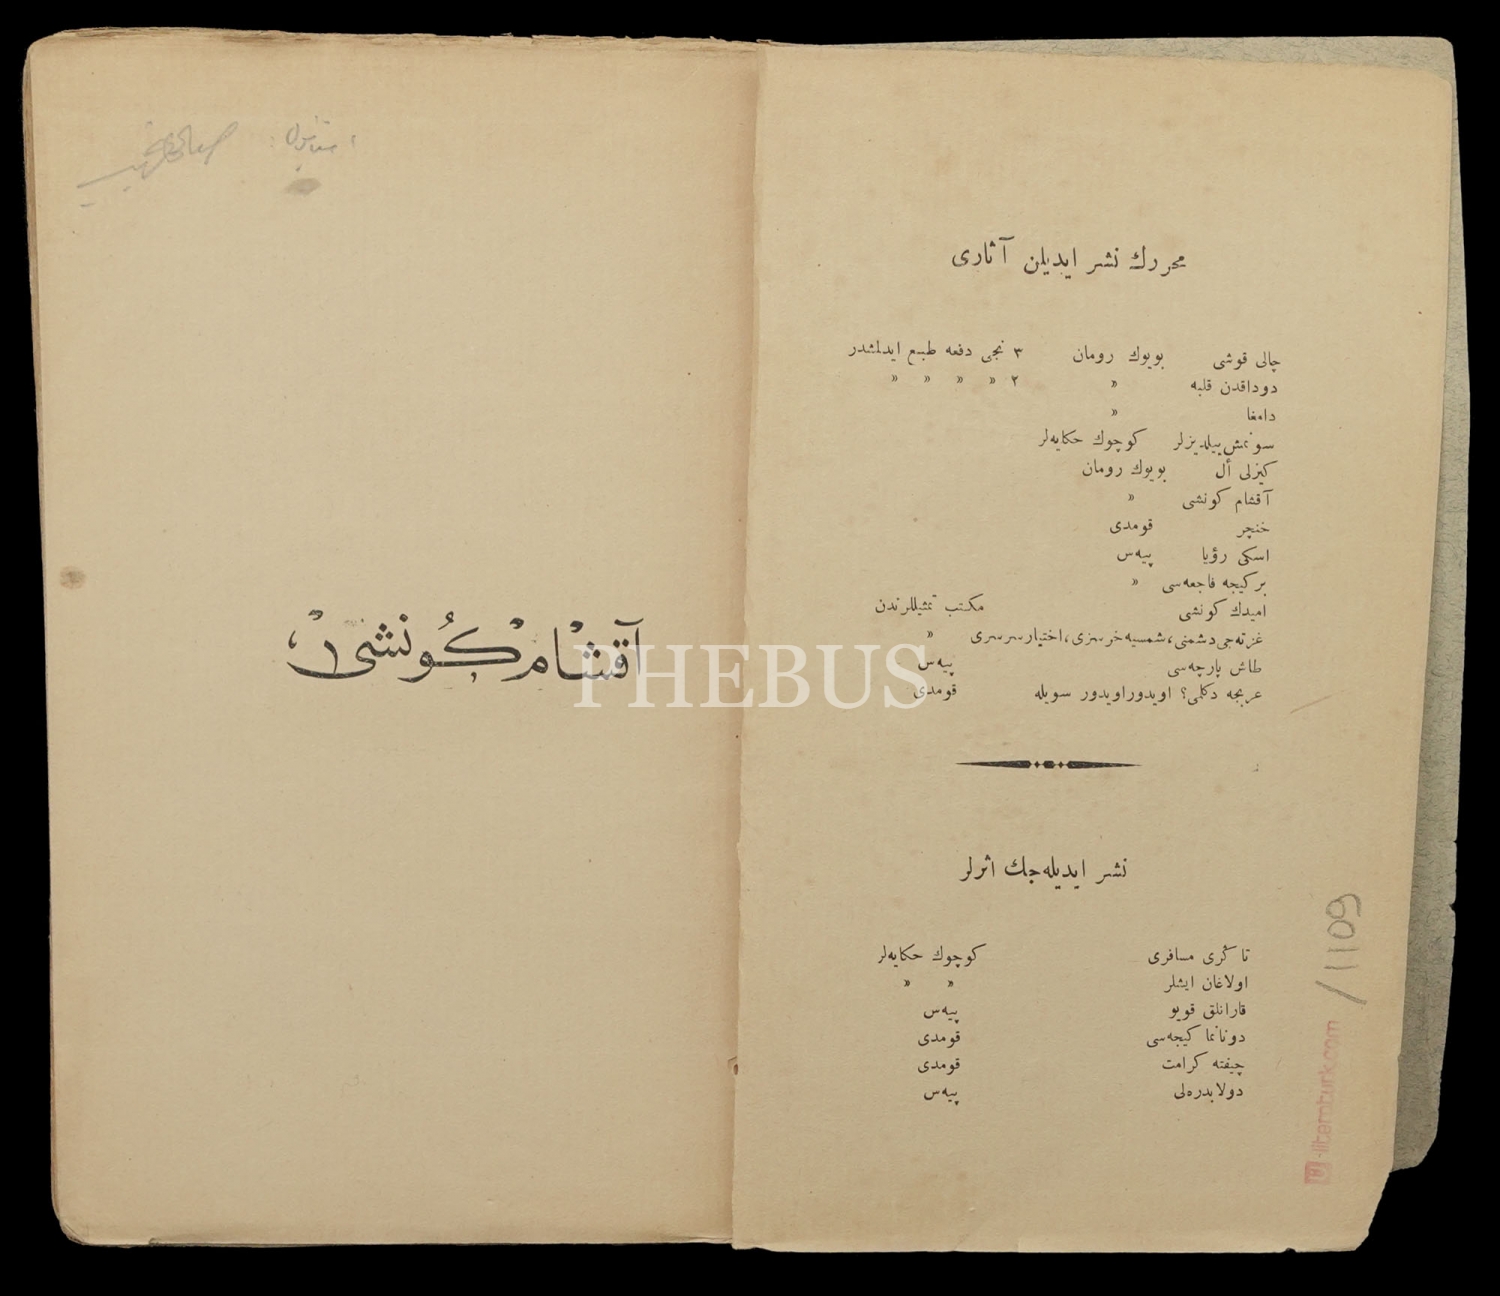 محررك نشر ايديلن آثاری
چالی قوشی بويوك رومان ٣ نجی دفعه طبع ايدلمشدر
دوداقدن قلبه » ٢ » » » »
دامغا »
سونمش ييلديزلر كوچوك حكايه‌لر
كيزلی أل بويوك رومان
آقشام كونشی »
خنچر قومدی
اسكی رؤيا پيه‌س
بر كيجه فاجعه‌سی »
اميدك كونشی مكتب تمثيللرندن
غزته‌جی دشمنی، شمسيه خرسزی، اختيار سرسری »
طاش پارچه‌سی پيه‌س
عربجه دكلمی؟ اويدور اويدور سويله قومدی
نشر ايديله‌جك اثرلر
تاكری مسافری كوچوك حكايه‌لر
اولاغان ايشلر » »
قارانلق قويو پيه‌س
دونانما كيجه‌سی قومدی
چيفته كرامت قومدی
دولابدره‌لی پيه‌س
آقشام كُونشی
PHEBUS
/1109
literaturk.com